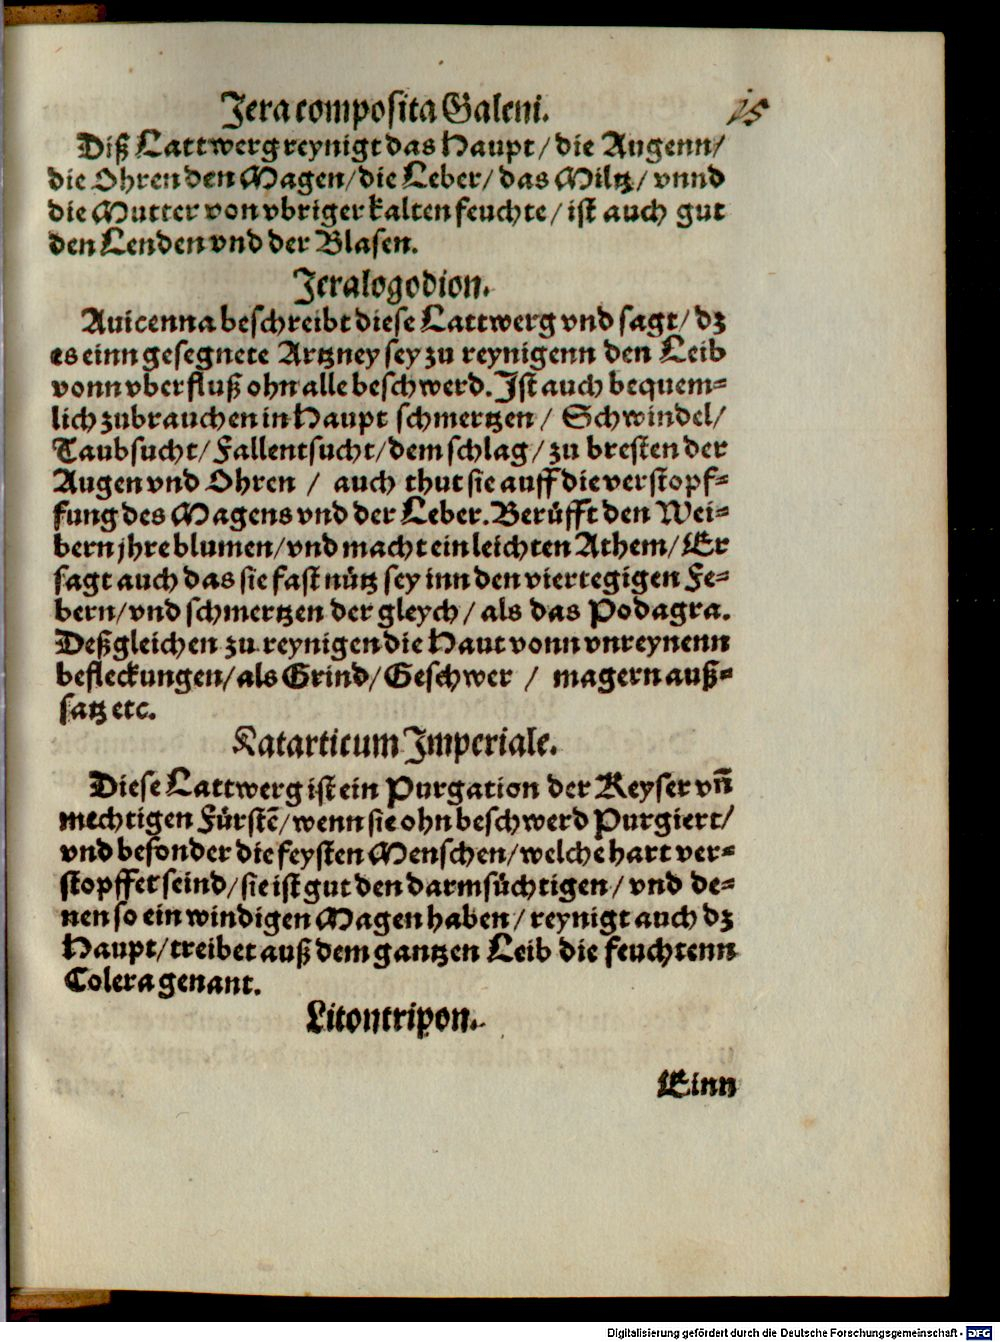 Jera composita Galeni. 15
Diß Lattwerg reynigt das Haupt / die Augenn /
die Ohren den Magen / die Leber / das Miltz / vnnd
die Mutter von vbriger kalten feuchte / ist auch gut
den Lenden vnd der Blasen.
Jeralogodion.
Auicenna beschreibt diese Lattwerg vnd sagt / dz
es einn gesegnete Artzney sey zu reynigenn den Leib
vonn vberfluß ohn alle beschwerd. Jst auch bequem=
lich zubrauchen in Haupt schmertzen / Schwindel /
Taubsucht / Fallentsucht / dem schlag / zu bresten der
Augen vnd Ohren / auch thut sie auff die verstopf=
fung des Magens vnd der Leber. Berüfft den Wei=
bern jhre blumen / vnd macht ein leichten Athem / Er
sagt auch das sie fast nütz sey inn den viertegigen Fe=
bern / vnd schmertzen der gleych / als das Podagra.
Deßgleichen zu reynigen die Haut vonn vnreynenn
befleckungen / als Grind / Geschwer / magern auß=
satz etc.
Katarticum Jmperiale.
Diese Lattwerg ist ein Purgation der Keyser vñ
mechtigen Fürstẽ / wenn sie ohn beschwerd Purgiert /
vnd besonder die feysten Menschen / welche hart ver=
stopffet seind / sie ist gut den darmsüchtigen / vnd de=
nen so ein windigen Magen haben / reynigt auch dz
Haupt / treibet auß dem gantzen Leib die feuchtenn
Colera genant.
Litontripon.
Einn
Digitalisierung gefördert durch die Deutsche Forschungsgemeinschaft - DFG